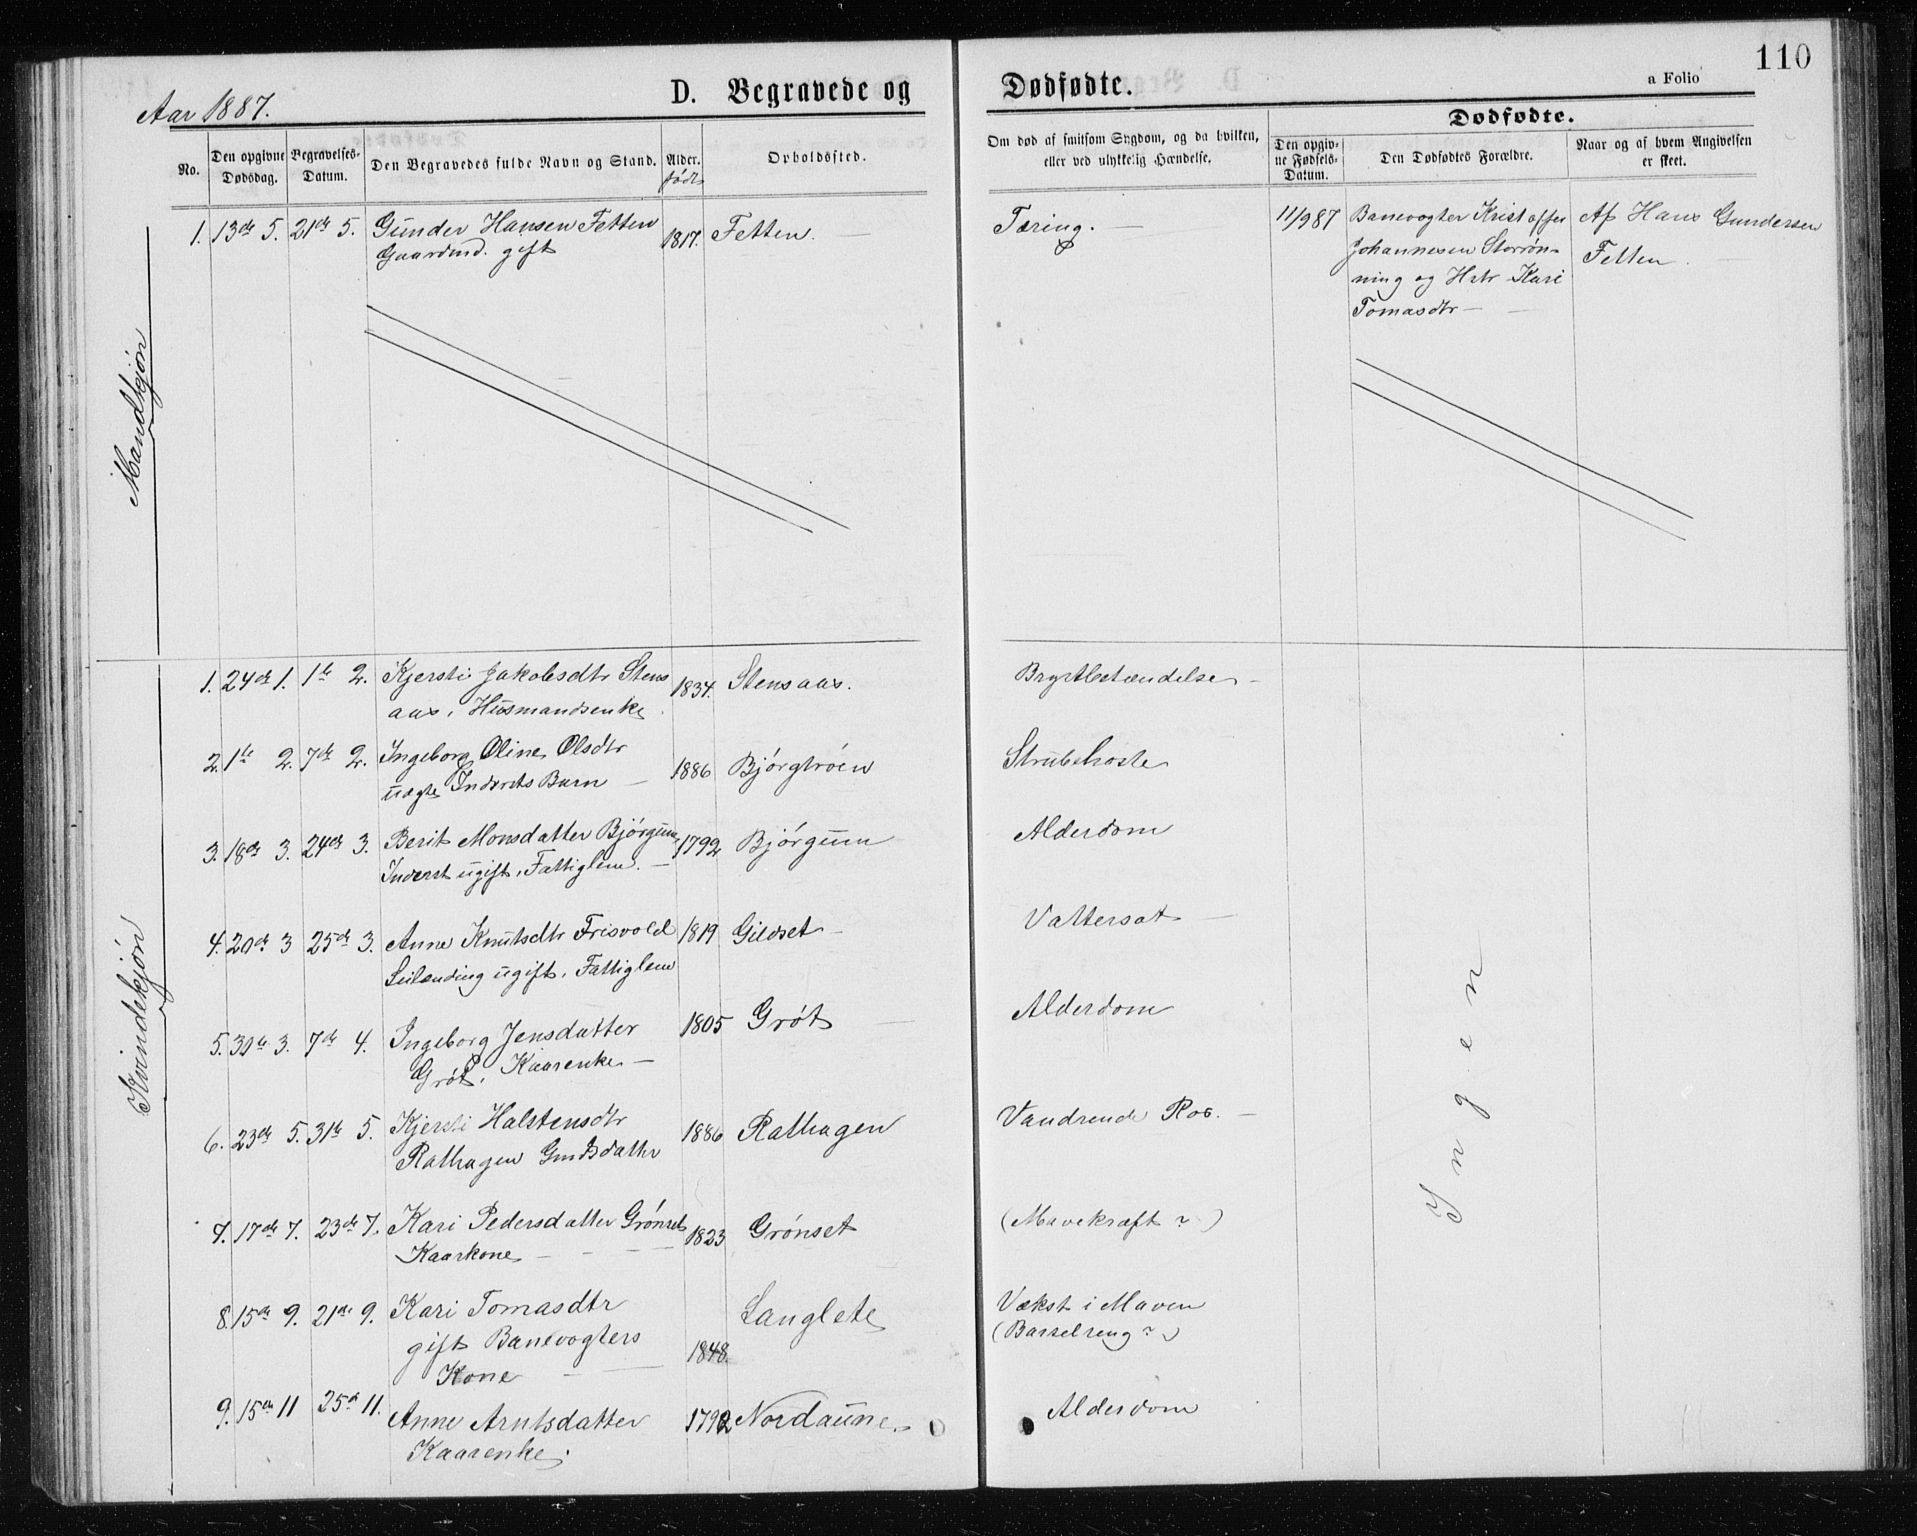 110
Aar 1887.
D. Begravede og Dødfødte.
a Folio
Dødfødte.
No.
Den opgivne Dødsdag.
Begravelses-Datum.
Den Begravedes fulde Navn og Stand.
Alder.
født
Opholdssted.
Om død af smitsom Sygdom, og da hvilken,
eller ved ulykkelig Hændelse.
Den opgiv-
ne Fødsels-
Datum.
Den Dødfødtes Forældre.
Naar og af hvem Angivelsen
er skeet.
Mandkjøn
1. 13de 5. 21de 5. Gunder Hansen Fetten 1817. Fetten. Tæring.
Gaardmd. gift
11/9 87 Banevogter Kristoffer
Johannesen Storrøn-
ning og Hstr Kari
Tomasdtr
Af Hans Gundersen
Fetten.
Kvindekjøn
1. 24de 1. 1te 2. Kjersti Jakobsdtr Stens 1834. Stensaas. Brystbetændelse
aas, Husmandsenke
2. 1te 2. 7de 2. Ingeborg Oline Olsdtr 1886 Bjørgtrøen Strubehoste
uægte Inderets Barn
3. 18de 3. 24de 3. Berit Monsdatter Bjørgum, 1792 Bjørgum Alderdom
Inderst ugift, Fattiglem.
4. 20de 3 25de 3. Anne Knutsdtr Frisvold 1819 Gildset Vattersot
Leilænding ugift, Fattiglem
5. 30te 3. 7de 4. Ingeborg Jensdatter 1805 Grøt Alderdom
Grøt, Kaarenke
6. 23de 5. 31te 5. Kjersti Halstensdtr 1886 Rathagen Vandrende Ros.
Rathagen Gmdsdatter
7. 17de 7. 23de 7. Kari Pedersdatter Grønset 1823 Grønset (Mavekræft ?)
Kaarkone
8. 15de 9. 21de 9. Kari Tomasdtr 1848. Langlete Vækst i Maven
gift Banevogters (Barselseng ?)
Kone
9. 15de 11 25de 11. Anne Arntsdatter 1792 Nordaune Alderdom
Kaarenke.
Ingen